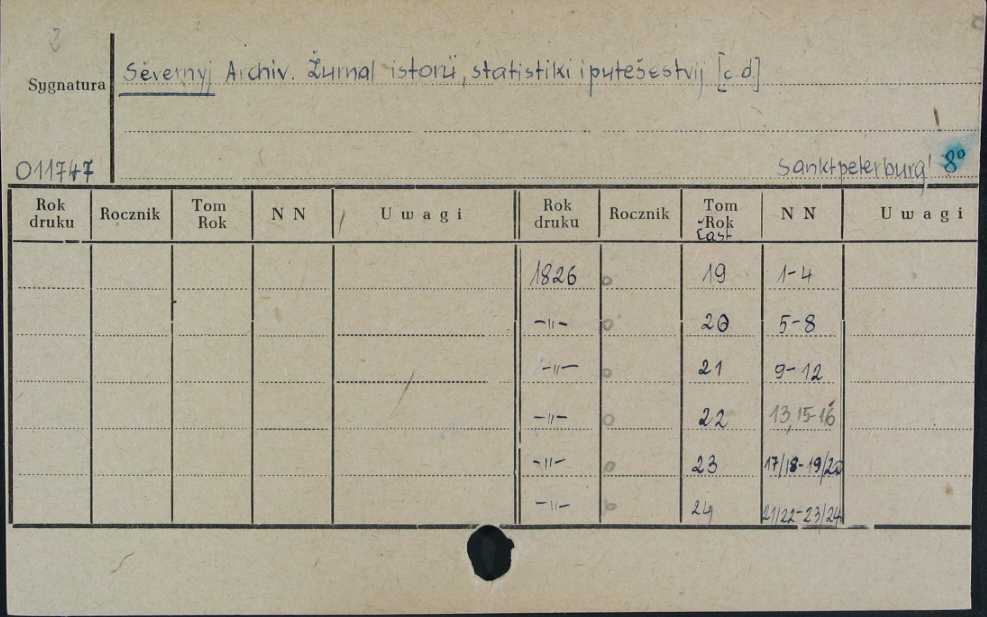 2
Sygnatura
Sěvernyj Archiv. Žurnal istorii, statistiki i putešestvij [c.d]
011747
Sanktpeterburg' 8°
Rok druku Rocznik Tom Rok N N Uwagi Rok druku Rocznik Tom Rok čast N N Uwagi
1826 o 19 1-4
-"- o 20 5-8
-"- o 21 9-12
-"- o 22 13,15-16
-"- o 23 17/18-19/20
-"- o 24 21/22-23/24